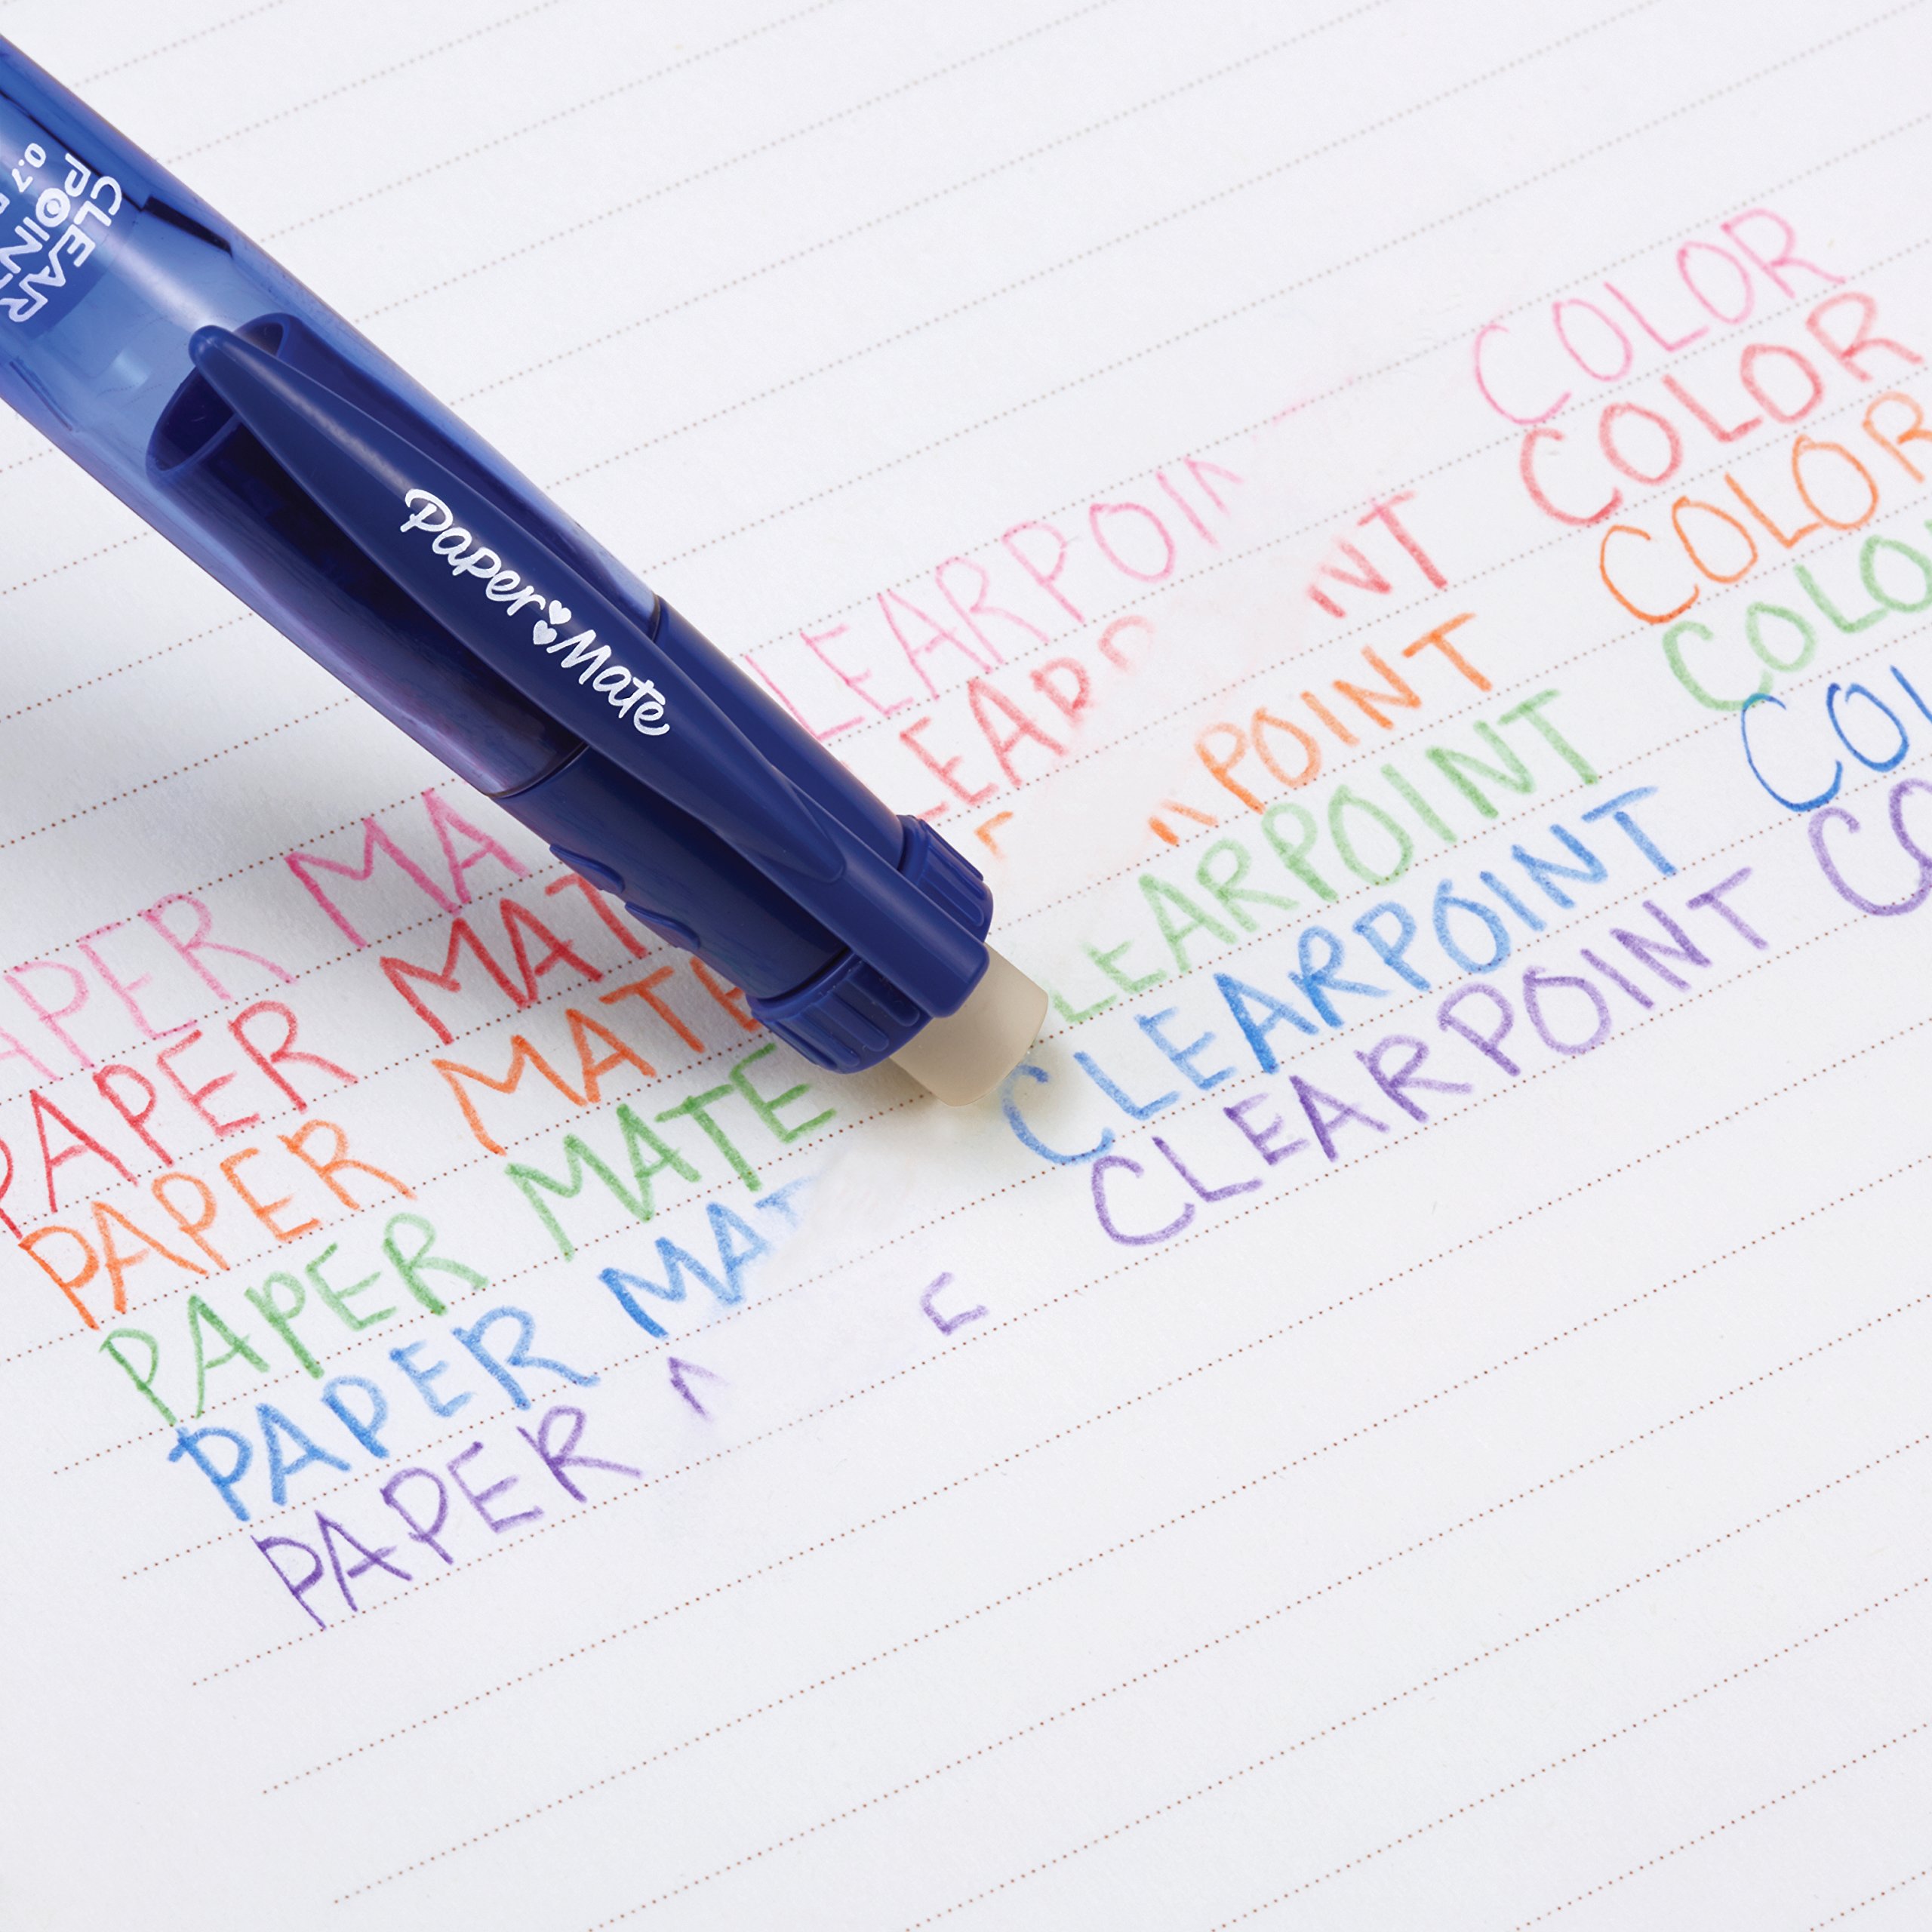 CLEAR
POINT
0.7
Paper Mate
APER MA LEARPOIN COLOR
PAPER MAT LEARP NT COLOR
PAPER MATE POINT COLOR
PAPER MATE LEARPOINT COLO
PAPER MAT CLEARPOINT COL
PAPER E CLEARPOINT CO